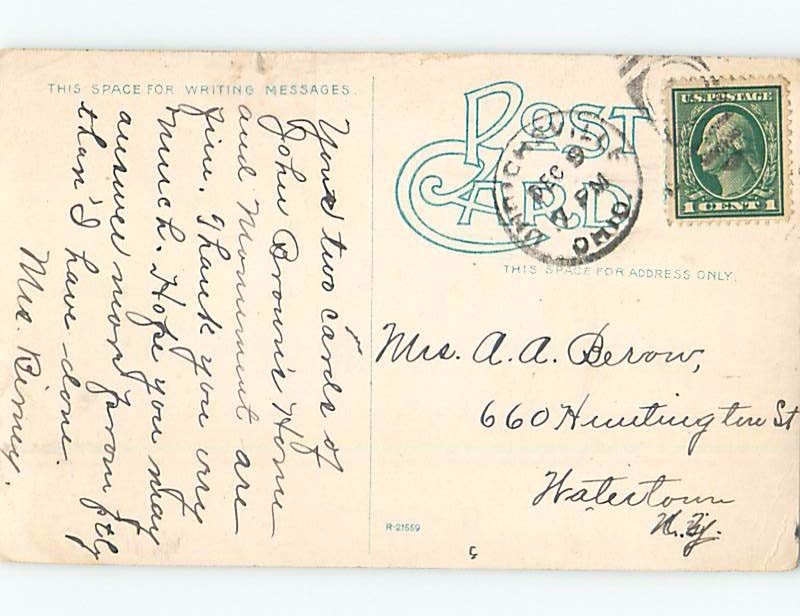 THIS SPACE FOR WRITING MESSAGES.
Your two cards of
John Brown's Home
and Monument are
fine. Thank you very
much. Hope you may
answer more promptly
than I have done.
Mrs.
POST CARD
DEC 9
PM
OHIO
U.S. POSTAGE
1 CENT 1
THIS SPACE FOR ADDRESS ONLY.
Mrs. A. A. Berow,
660 Huntington St
Watertown
N.Y.
R-21559